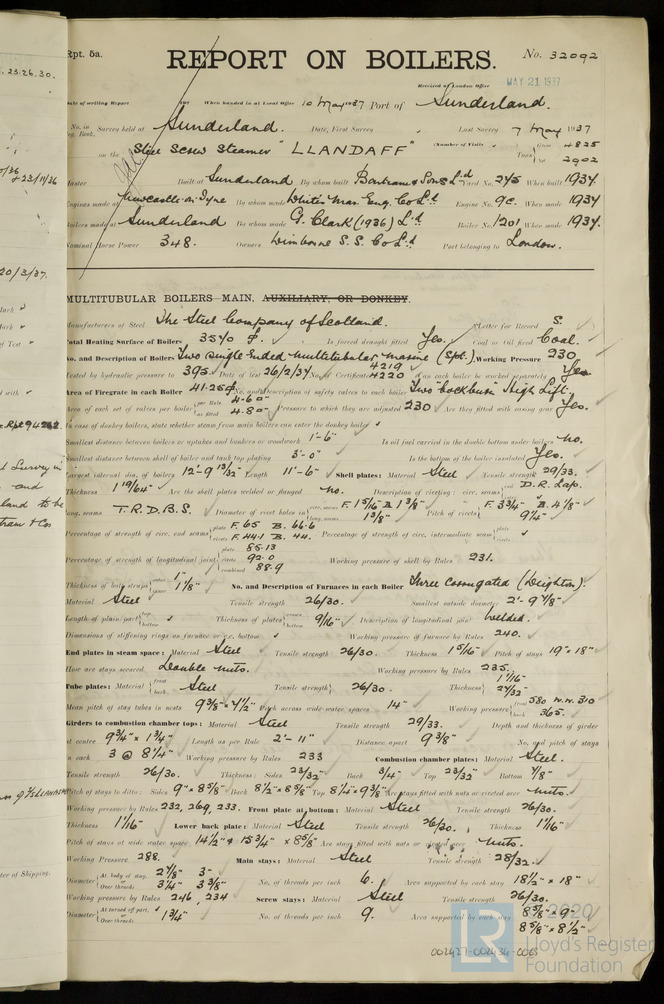 Rpt. 5a.
REPORT ON BOILERS.
No. 32092
Received at London Office
MAY 21 1937
Date of writing Report
When handed in at Local Office 10 May 1937 Port of Sunderland.
No. in Reg. Book.
Survey held at Sunderland. Date, First Survey Last Survey 7 May 1937
on the Steel Screw Steamer "LLANDAFF" (Number of Visits Tons Gross 4825 Net 2902
Master Built at Sunderland By whom built Bartram & Sons Ld Yard No. 245 When built 1937.
Engines made at Newcastle on Tyne By whom made White's Mar. Eng. Co Ld Engine No. 9C. When made 1937
Boilers made at Sunderland By whom made G. Clark (1936) Ld Boiler No. 1201 When made 1937.
Nominal Horse Power 348. Owners Wimborne S.S. Co Ld Port belonging to London.
MULTITUBULAR BOILERS MAIN, AUXILIARY, OR DONKEY.
Manufacturers of Steel The Steel Company of Scotland. Letter for Record S.
Total Heating Surface of Boilers 3570 Is forced draught fitted Yes. Coal or Oil fired Coal.
No. and Description of Boilers Two single ended multitubular marine (Spt.) Working Pressure 230
Tested by hydraulic pressure to 395 Date of test 26/2/37 No. of Certificate 4219 4220 Can each boiler be worked separately Yes
Area of Firegrate in each Boiler 41.25 No. and Description of safety valves to each boiler Two "Cockburn" High Lift.
Area of each set of valves per boiler per Rule 4.60 as fitted 4.80 Pressure to which they are adjusted 230 Are they fitted with easing gear Yes.
In case of donkey boilers, state whether steam from main boilers can enter the donkey boiler
Smallest distance between boilers or uptakes and bunkers or woodwork 1'-6" Is oil fuel carried in the double bottom under boilers No.
Smallest distance between shell of boiler and tank top plating 3'-0" Is the bottom of the boiler insulated Yes.
Largest internal dia. of boilers 12'-9 13/32" Length 11'-6" Shell plates: Material Steel Tensile strength 29/33.
Thickness 1 19/64" Are the shell plates welded or flanged No. Description of riveting: circ. seams D.R. Lap.
long. seams T.R.D.B.S. Diameter of rivet holes in circ. seams F. 1 5/16" B 1 3/8" long. seams 1 3/8" Pitch of rivets F. 3 3/4" B. 4 1/8" 9 1/4"
Percentage of strength of circ. end seams plate F. 65 B. 66.6 rivets F. 44.1 B. 44. Percentage of strength of circ. intermediate seam plate rivets
Percentage of strength of longitudinal joint plate 85.13 rivets 92.0 combined 88.9 Working pressure of shell by Rules 231.
Thickness of butt straps outer 1" inner 1 1/8" No. and Description of Furnaces in each Boiler Three Corrugated (Deighton).
Material Steel Tensile strength 26/30. Smallest outside diameter 2'-9 7/8"
Length of plain part top bottom Thickness of plates crown bottom 9/16" Description of longitudinal joint Welded.
Dimensions of stiffening rings on furnace or c.c. bottom Working pressure of furnace by Rules 240.
End plates in steam space: Material Steel Tensile strength 26/30. Thickness 1 5/16" Pitch of stays 19" x 18"
How are stays secured Double nuts. Working pressure by Rules 235.
Tube plates: Material front back Steel Tensile strength 26/30. Thickness 1 1/16" 27/32"
Mean pitch of stay tubes in nests 9 3/8" x 7 1/2" Pitch across wide water spaces 14" Working pressure front 580 W.W. 310 back 365.
Girders to combustion chamber tops: Material Steel Tensile strength 29/33. Depth and thickness of girder
at centre 9 3/4" x 1 3/4" Length as per Rule 2'-11" Distance apart 9 3/8" No. and pitch of stays
in each 3 @ 8 1/4" Working pressure by Rules 233 Combustion chamber plates: Material Steel.
Tensile strength 26/30. Thickness: Sides 23/32" Back 3/4" Top 23/32" Bottom 7/8"
Pitch of stays to ditto: Sides 9" x 8 5/8" Back 8 1/2" x 8 5/8" Top 8 1/4" x 9 3/8" Are stays fitted with nuts or riveted over Nuts.
Working pressure by Rules 232, 269, 233. Front plate at bottom: Material Steel Tensile strength 26/30.
Thickness 1 1/16" Lower back plate: Material Steel Tensile strength 26/30. Thickness 1 1/16"
Pitch of stays at wide water space 14 1/2" x 15 3/4" x 8 5/8" Are stays fitted with nuts or riveted over Nuts.
Working Pressure 288. Main stays: Material Steel Tensile strength 28/32.
Diameter At body of stay, 2 7/8" 3" Over threads 3 1/4" 3 3/8" No. of threads per inch 6. Area supported by each stay 18 1/2" x 18"
Working pressure by Rules 246, 234 Screw stays: Material Steel Tensile strength 26/30.
Diameter At turned off part, Over threads 1 3/4" No. of threads per inch 9. Area supported by each stay 8 5/8" x 9" 8 5/8" x 8 1/2"
002427-002434-0065
© 2020
LR
Lloyd's Register
Foundation